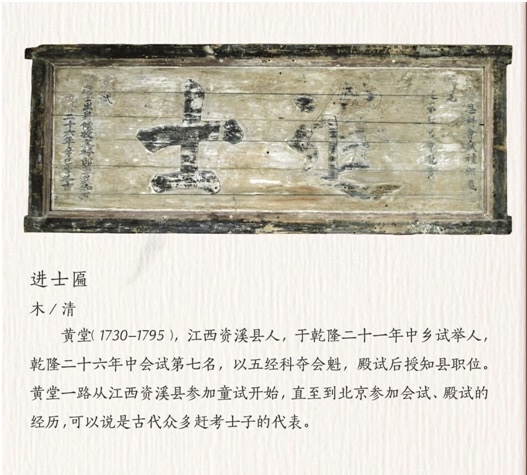 進士
进士匾
木 / 清
黄堂(1730–1795)，江西资溪县人，于乾隆二十一年中乡试举人，
乾隆二十六年中会试第七名，以五经科夺会魁，殿试后授知县职位。
黄堂一路从江西资溪县参加童试开始，直至到北京参加会试、殿试的
经历，可以说是古代众多赶考士子的代表。